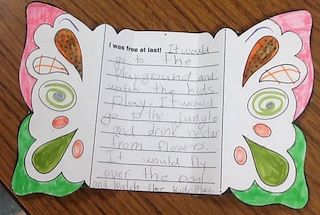 I was free at last! It would
go to the
playground and
watch the kids
play. It would
go to the jungle
and drink nectar
from flowers.
It would fly
over the pool
and watch the kids play.